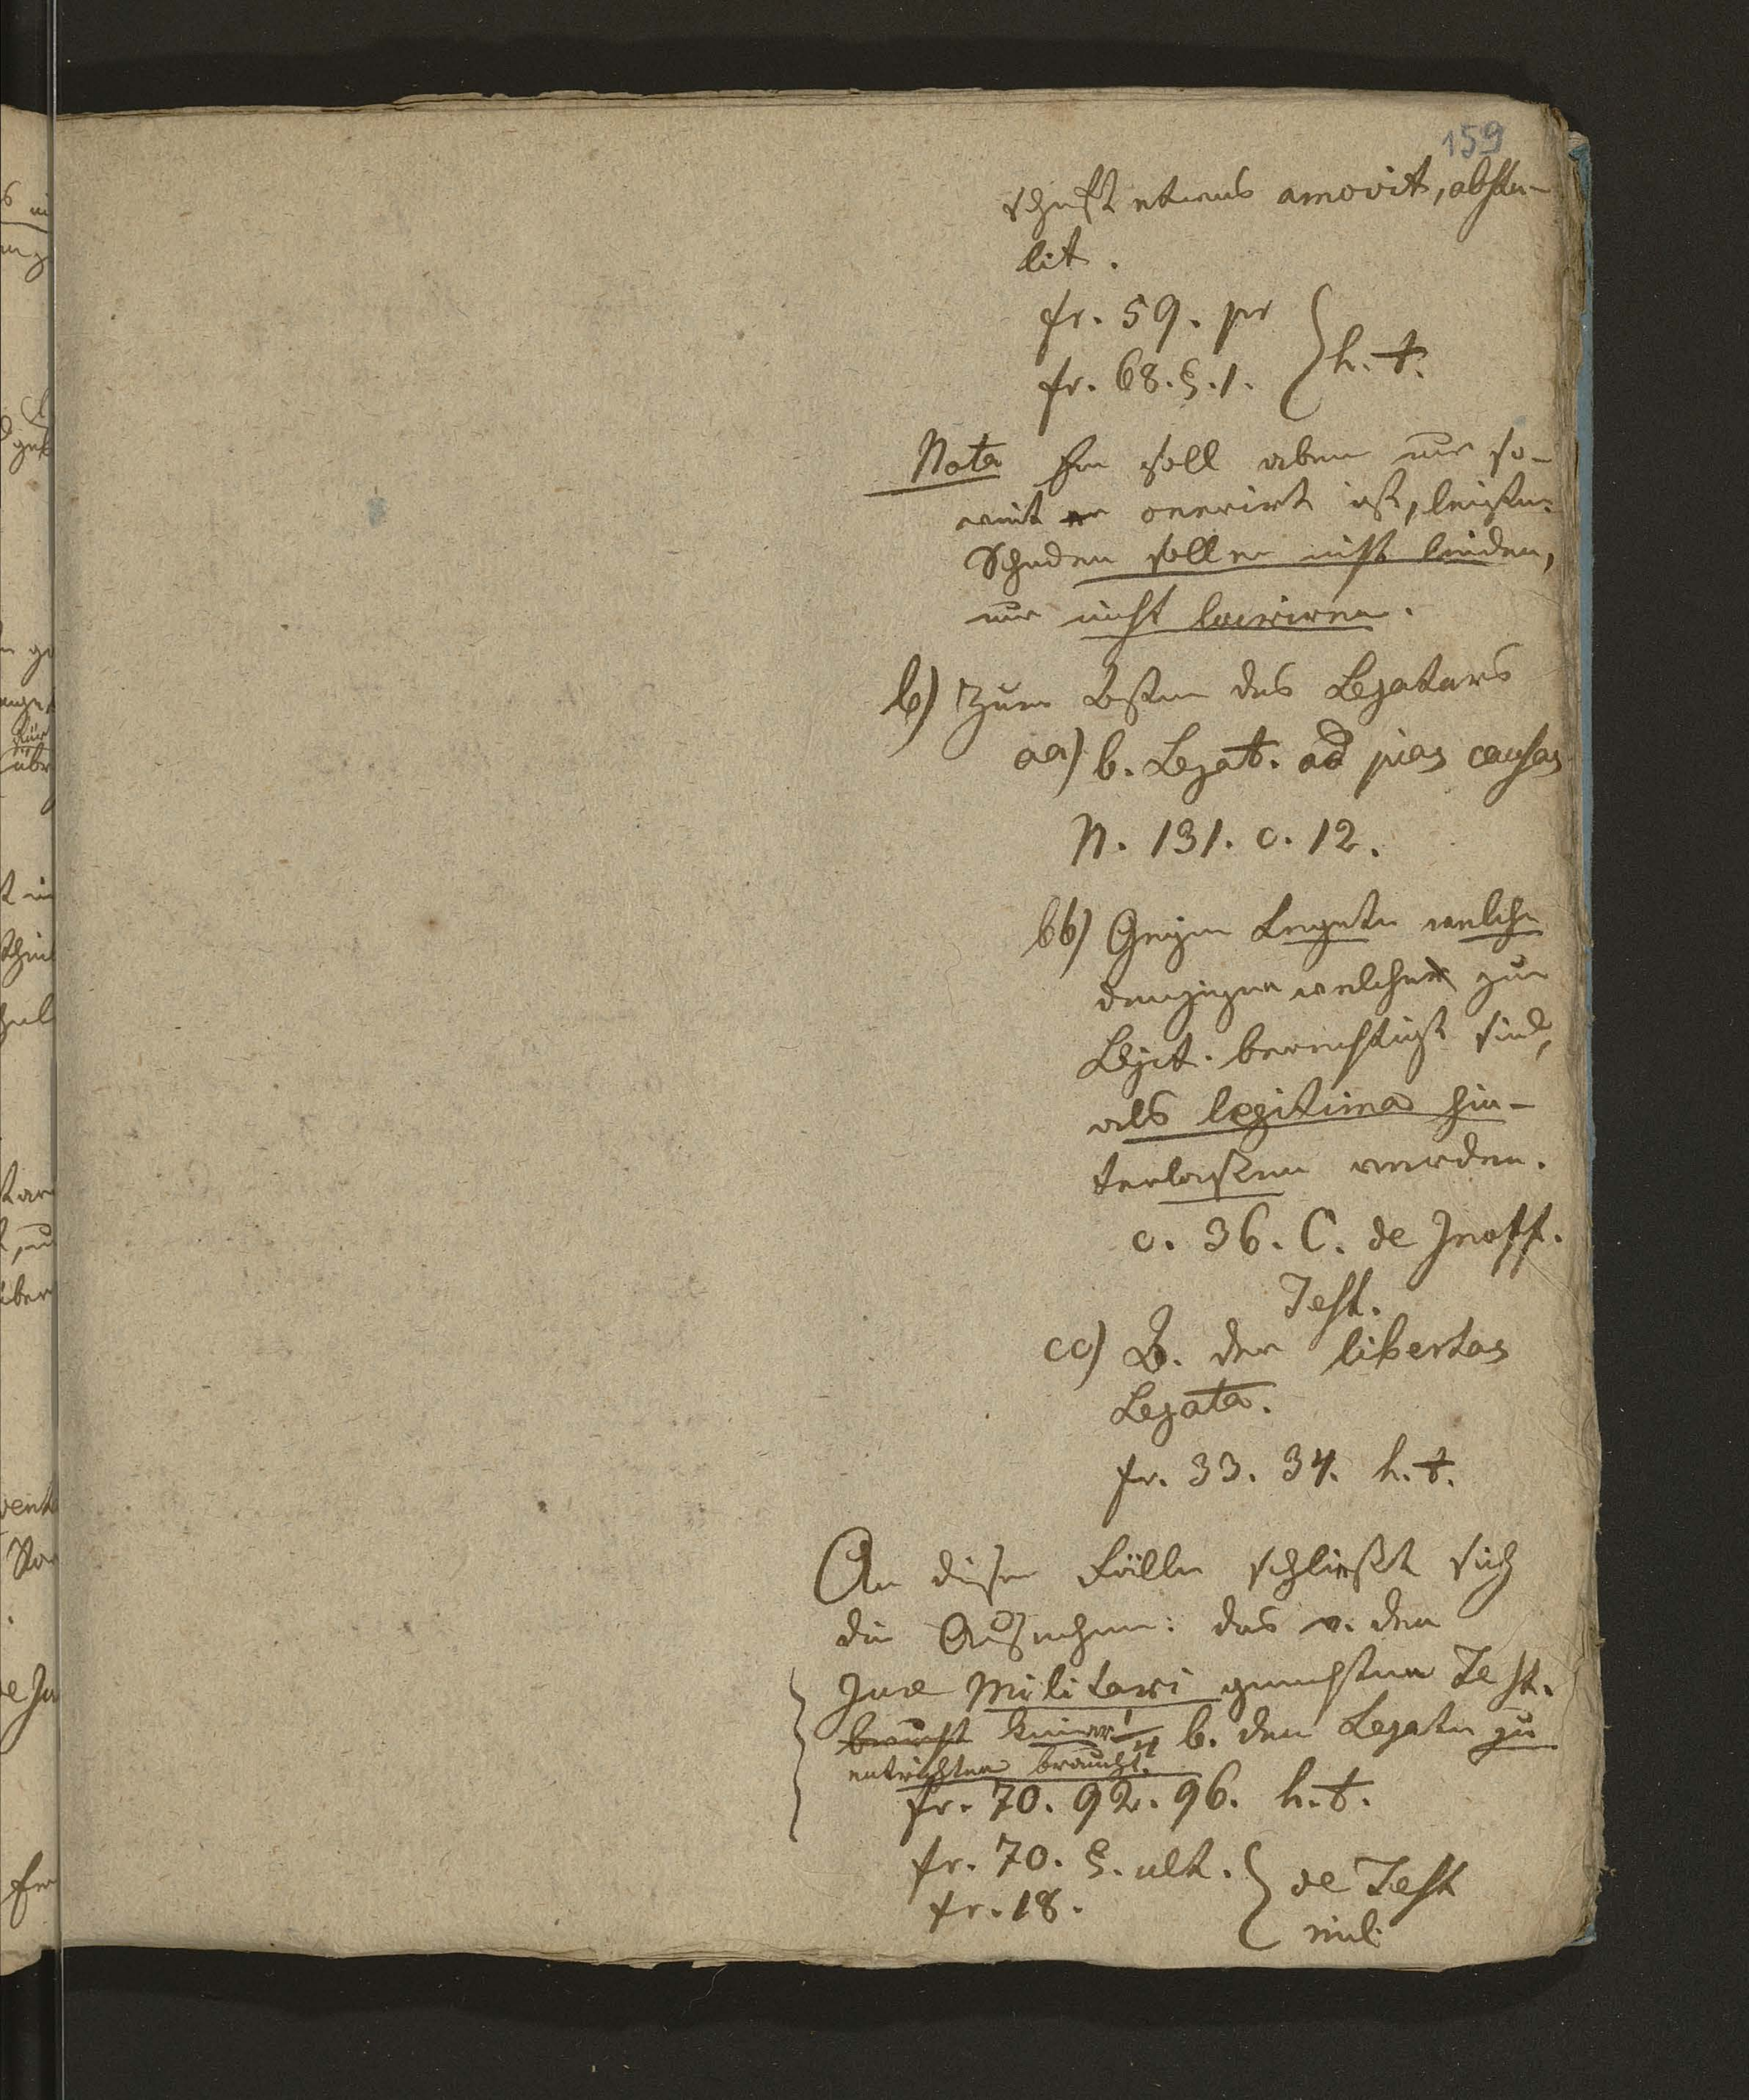 159
schaft etwas amovit, abstu-
lit.
fr. 59. pr
fr. 68. §. 1. } h. t.
Nota Er soll aber nur so-
weit er onerirt ist, leisten.
Schaden soll er nicht leiden,
nur nicht lucriren.
b) Zum Besten des Legatars
aa) b. Legat. ad pias causas
N. 131. c. 12.
bb) Gegen Legate welche
denjenigen welche zur
Legit. berechtigt sind,
als legitima hin-
terlaßen werden.
c. 36. C. de Inoff.
Test.
cc) B. der libertas
Legata.
fr. 33. 34. h. t.
An diese Fälle schließt sich
die Ausnahme: das v. den
Jure Militari gemachten Test.
braucht keine ¼ b. den Legaten zu
entrichten braucht.
fr. 70. 92. 96. h. t.
fr. 70. §. ult.
fr. 18. } de Test
mil.